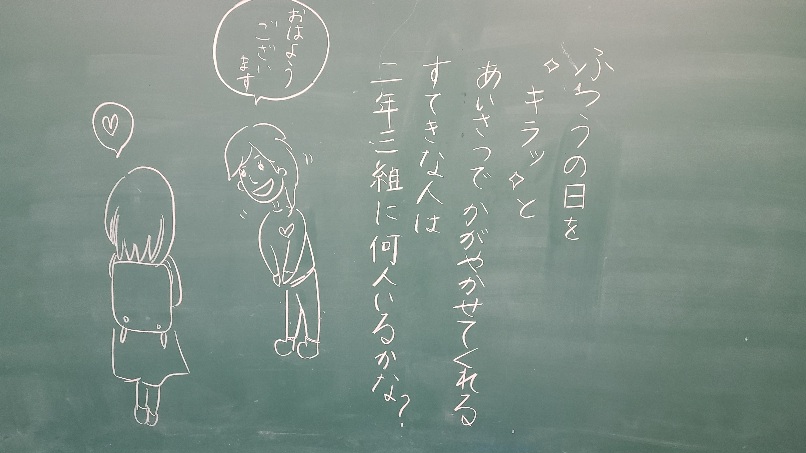 ふつうの日を
キラッと
あいさつでかがやかせてくれる
すてきな人は
二年三組に何人いるかな?
おはよう
ござい
ます